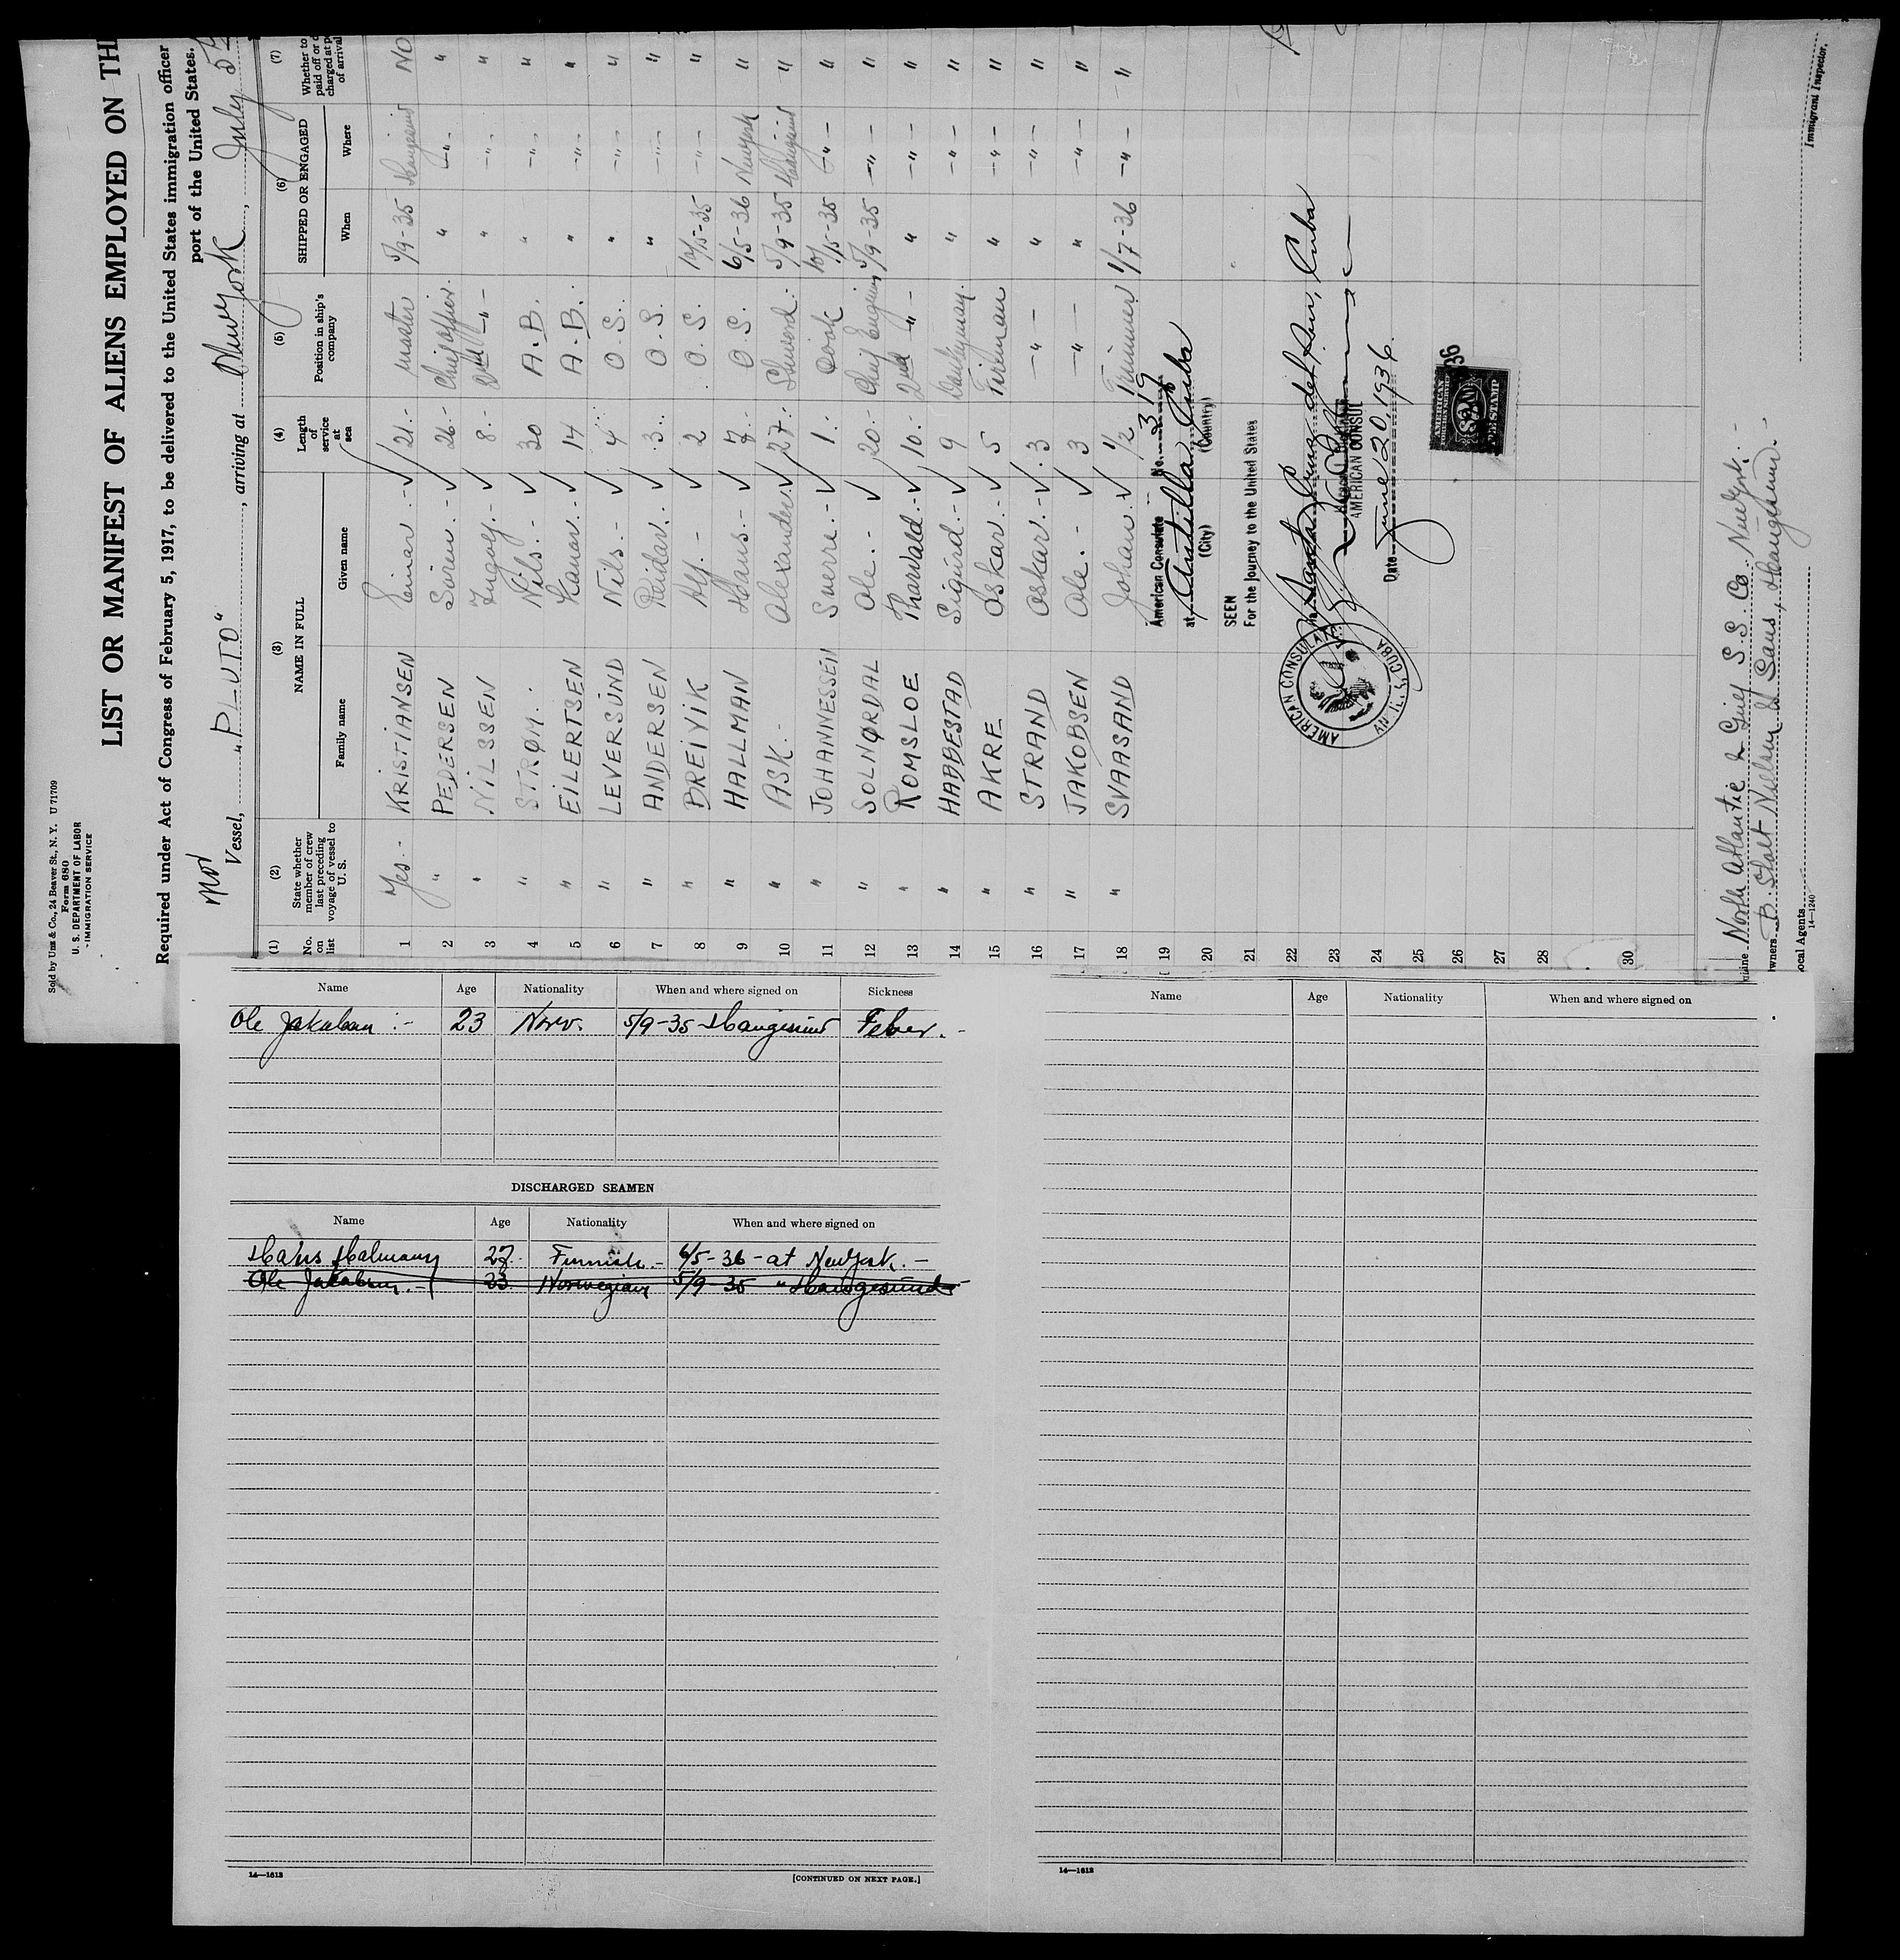 Sold by Unz & Co., 24 Beaver St., N. Y. U 71709
Form 680
U. S. DEPARTMENT OF LABOR
IMMIGRATION SERVICE
LIST OR MANIFEST OF ALIENS EMPLOYED ON TH
Required under Act of Congress of February 5, 1917, to be delivered to the United States immigration officer
port of the United States.
Nor
Vessel, "PLUTO" , arriving at New York , July 5
(1) (2) (3) (4) (5) (6) (7)
No. on list
State whether member of crew last preceding voyage of vessel to U. S.
NAME IN FULL
Family name Given name
Length of service at sea
Position in ship's company
SHIPPED OR ENGAGED
When Where
Whether to paid off or charged at of arrival
1 Yes.- KRISTIANSEN Einar.- ✓ 21.- Master 5/9-35 Haugesund NO
2 " PEDERSEN Sören.- ✓ 26.- Chief officer. " -"- "
3 " NILSSEN Ingolf.- ✓ 8.- 2nd -"- " -"- "
4 " STRØM. Nils.- ✓ 30 A.B. " -"- "
5 " EILERTSEN ✓ 14 A.B. " -"- "
6 " LEVERSUND Nils.- ✓ 4 O.S. " -"- "
7 " ANDERSEN Reidar.- ✓ 3.- O.S. " -"- "
8 " BREIVIK Alf.- ✓ 2 O.S. -"- "
9 " HALLMAN Hans.- ✓ 7.- O.S. 6/5-36 New York "
10 " ASK.- Alexander. ✓ 27.- Steword. 5/9-35 Haugesund "
11 " JOHANNESSEN Sverre.- ✓ 1.- Cook -"- "
12 " SOLNØRDAL Ole.- ✓ 20.- Chief Engineer 5/9-35 -"- "
13 " ROMSLOE Tharwald.- ✓ 10.- 2nd -"- " -"- "
14 " HABBESTAD Sigurd.- ✓ 9 Donkeyman. " -"- "
15 " AKRE Oskar.- ✓ 5 Fireman " -"- "
16 " STRAND Oskar.- ✓ 3 -"- " -"- "
17 " JAKOBSEN Ole.- ✓ 3 -"- " -"- "
18 " SVAASAND Johan.- ✓ 1/2 Trimmer 1/7-36 -"- "
19
20
21
22
23
24
25
26
27
28
30
American Consulate No. 319
at Antilla Cuba
(City) (Country)
SEEN
For the journey to the United States
via Santa Cruz del Sur, Cuba
AMERICAN CONSUL
Date June 20, 1936.
AMERICAN CONSULATE
ANTILLA, CUBA
AMERICAN
FEE STAMP
36
North Atlantic & Gulf S. S. Co. New York.-
wners B. Stolt Nielsen & Sons, Haugesund.-
ocal Agents
14—1240
Immigrant Inspector.
Name Age Nationality When and where signed on Sickness
Ole Jakobsen :- 23 Norw. 5/9-35 Haugesund Feber.-
DISCHARGED SEAMEN
Name Age Nationality When and where signed on
Hans Halmann 27. Finnish.- 6/5-36-at New York.-
Ole Jakobsen. 23 Norwegian 5/9-35 " Haugesund
14—1613
[CONTINUED ON NEXT PAGE.]
Name Age Nationality When and where signed on
14—1613